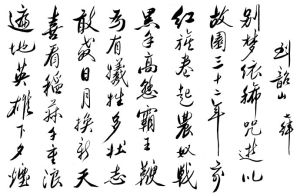 到韶山
七律
别梦依稀咒逝川
故園三十二年前
紅旗卷起農奴戟
黑手高懸霸主鞭
為有犧牲多壯志
敢教日月換新天
喜看稻菽千重浪
遍地英雄下夕煙